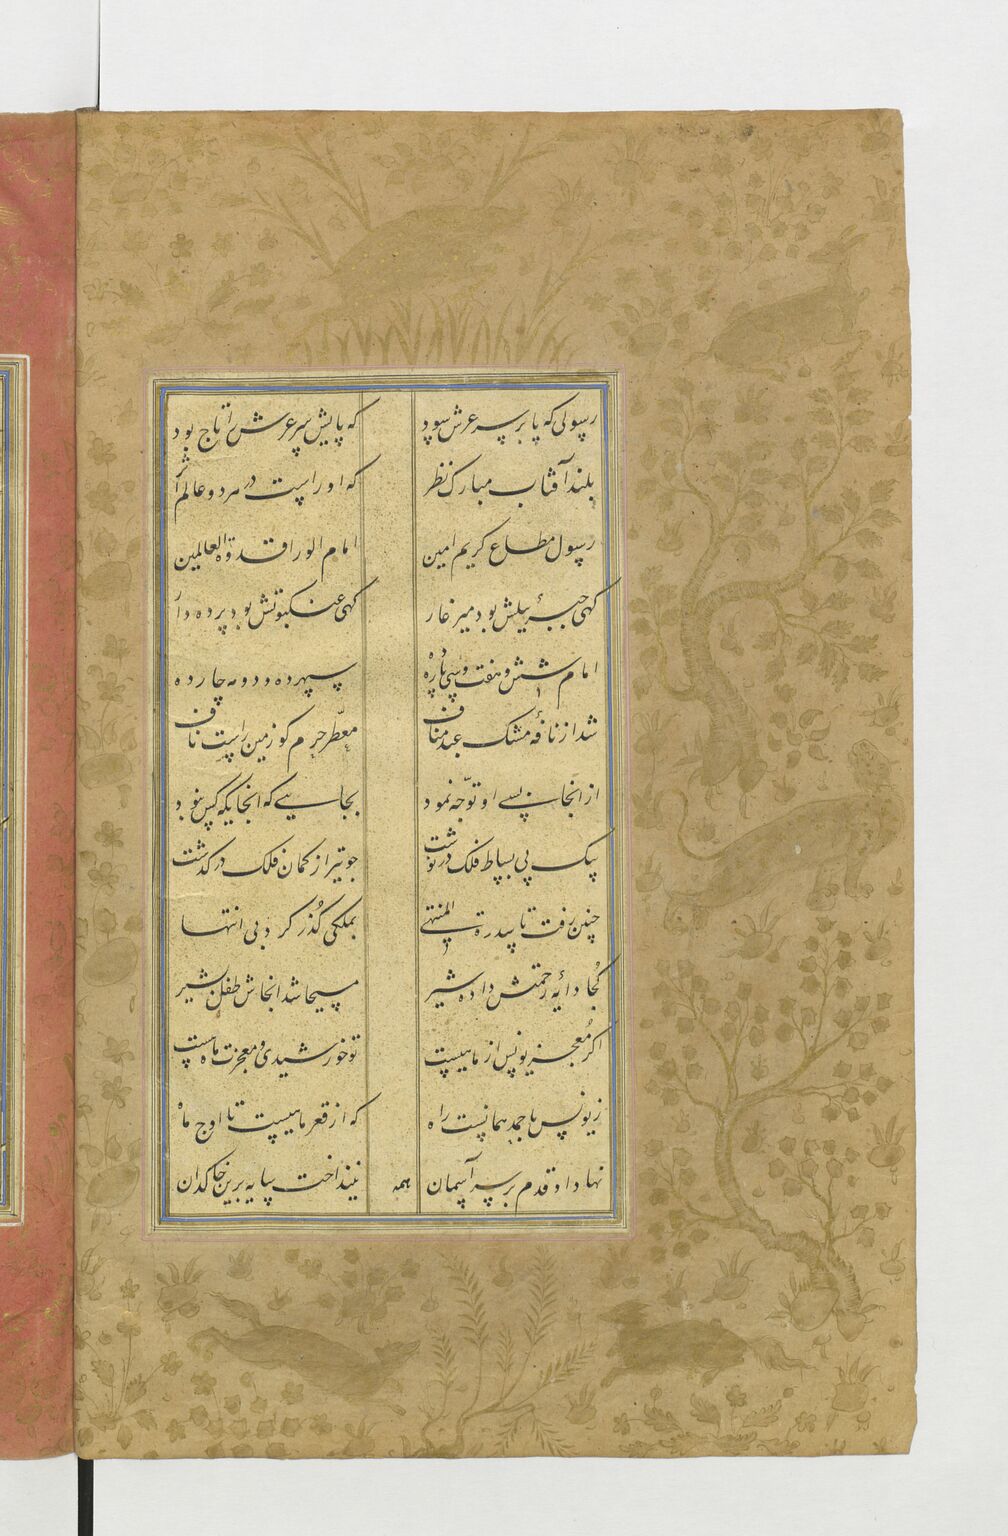 رسولی که پا بر سر عرش سود که پایش سر عرش را تاج بود
بلند آفتاب مبارک نظر که او راست در هر دو عالم اثر
رسول مطاع کریم امین امام الورا قدوة العالمین
کهی جبرئیلش بود میر غار کهی عنکبوتش بود پرده دار
امام شش و هفت و سی پاره ده سپهر ده و دو مه چارده
شد از نافهٔ مشک عبد مناف معطّر حرم کو زمین راست ناف
از انجا پسے او توجّه نمود بجایے که انجایکه کس نبود
پیک پی بساط فلک در نوشت جو تیر از کمان فلک در کذشت
چنین رفت تا سدرة المنتهے بملکی کُذر کرد بی انتها
کُجا دایهٔ رحمتش داده شیر مسیحا شد انجاش طفل بشیر
اکر مُعجز یونس از ماهیست تو خورشیدی و معجزت ماهست
ز یونس باحمد همانست راه که از قعر ماهیست تا اوج ماه
نهاد او قدم بر سر آسمان نینداخت سایه برین خاکدان
همه